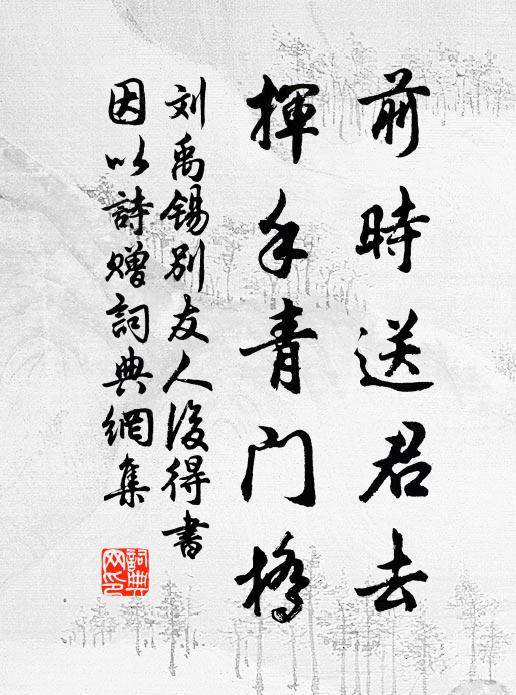 前時送君去
揮手青门橋
刘禹锡别友人後得書
因以詩赠詞典網集
詞典网印